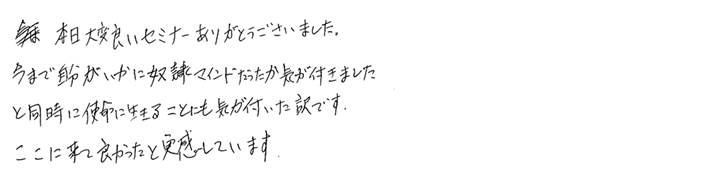 本日大変良いセミナーありがとうございました。
今まで自分がいかに奴隷マインドだったか気が付きました
と同時に使命に生きることにも気が付いた訳です.
ここに来て良かったと実感しています.